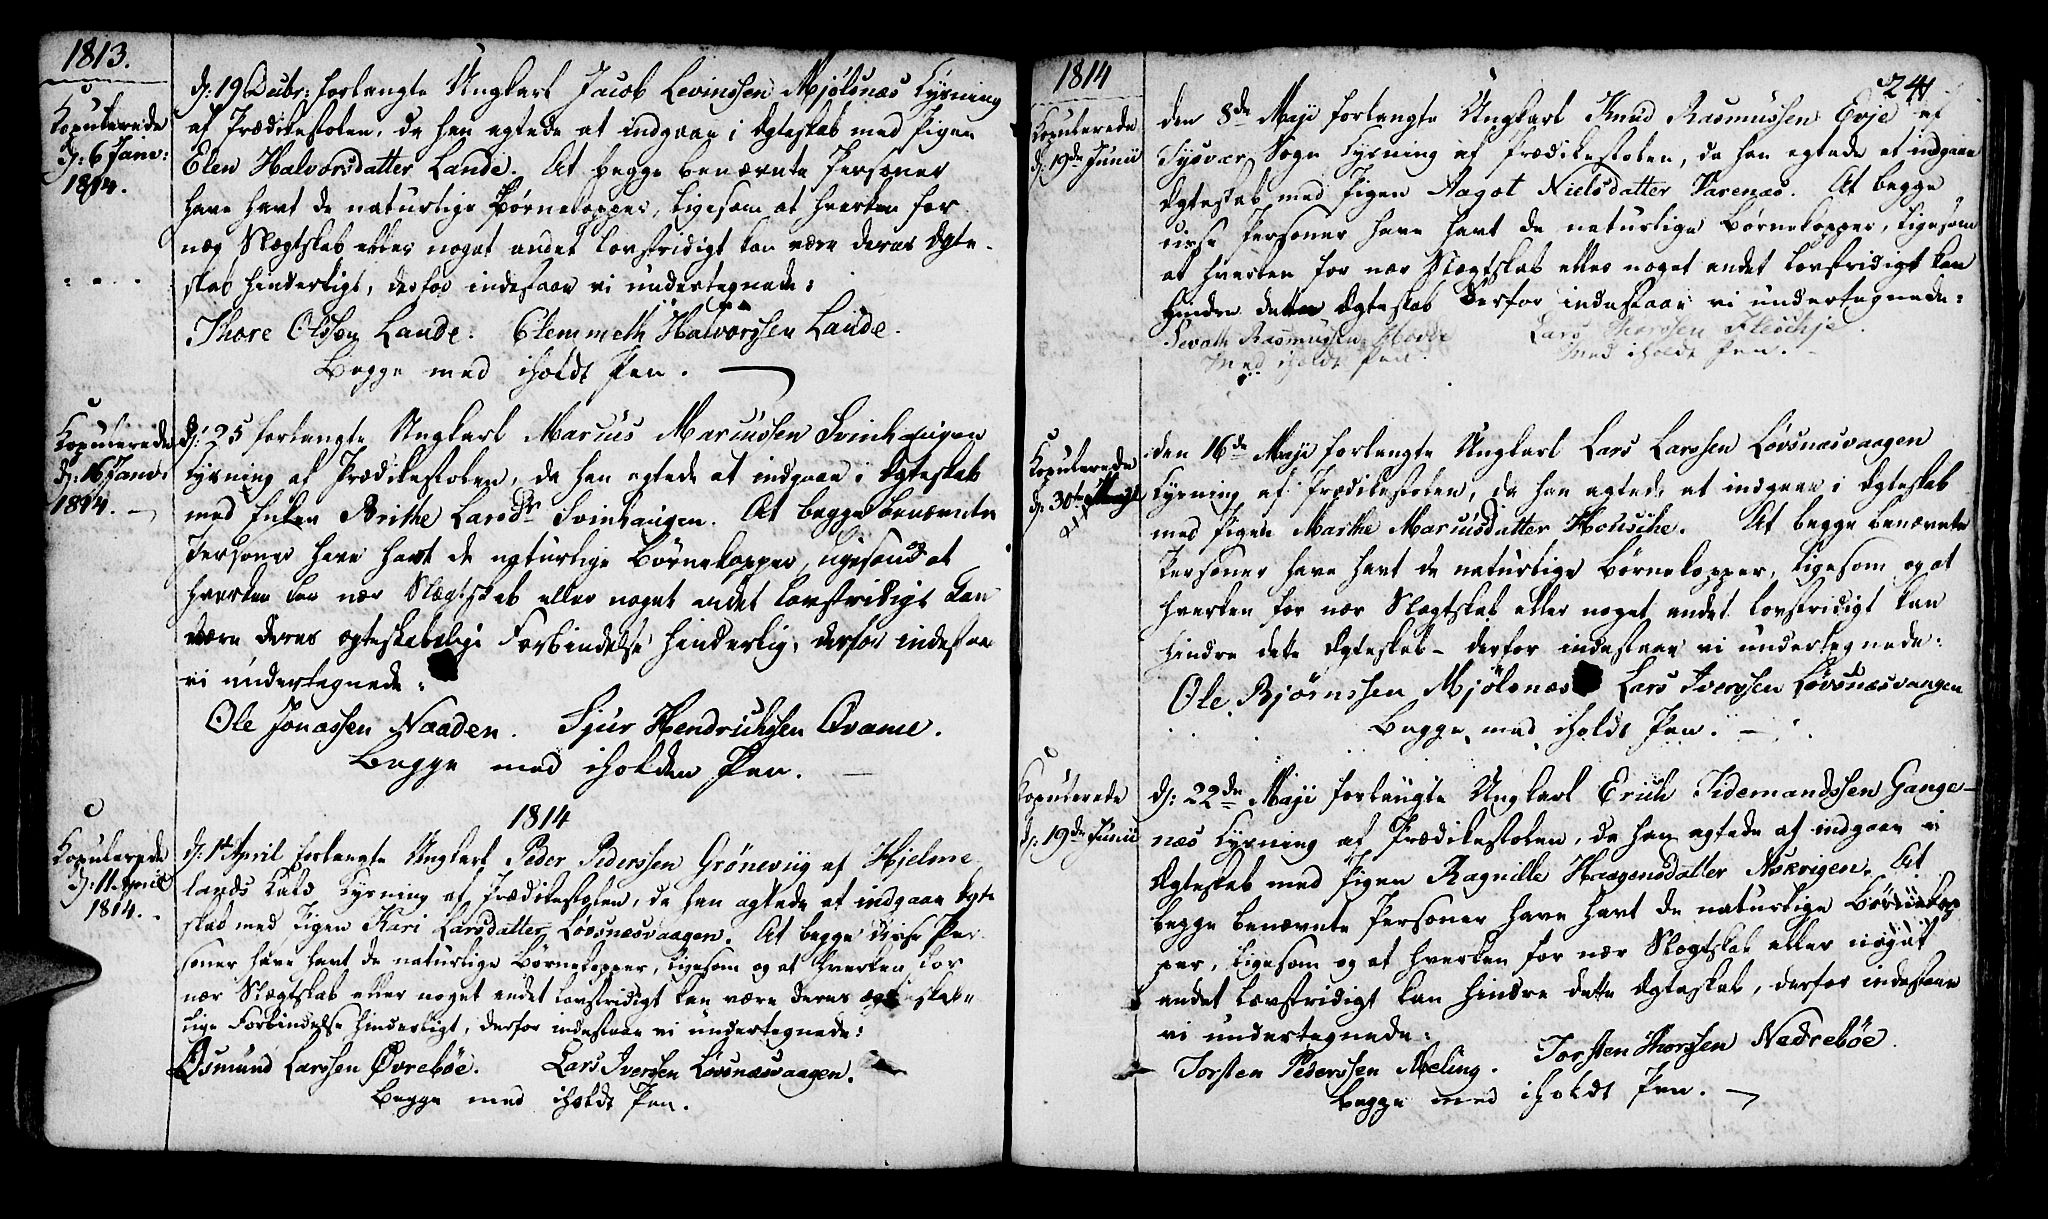 1813.
Kopulerede
d: 6 Janv:
1814.
d: 19 Decbr: forlangte Ungkarl Jacob Levinssen Mjølsnæs Lysning
af Prædikestolen, da han agtede at indgaae i Ægteskab med Pigen
Elen Halvorsdatter Lande. At begge benævnte Personer
have havt de naturlige Børnekopper, ligesom at hverken for
nær Slægtskab eller noget andet lovstridigt kan være deres Ægte-
skab hinderligt, derfor indestaae vi undertegnede:
Thore Olssen Lande. Clemmeth Halvorssen Lande.
Begge med iholdt Pen.
Kopulerede
d: 16 Janv:
1814.
d: 25 forlangte Ungkarl Marcus Marcussen Svinhaugen
Lysning af Prædikestolen, da han agtede at indgaae i Ægteskab
med Enken Brithe Larsdr Svinhaugen. At begge benævnte
Personer have havt de naturlige Børnekopper, ligesom at
hverken for nær Slægtskab eller noget andet lovstridigt kan
være deres ægteskabelige Forbindelse hinderlig, derfor indestaae
vi undertegnede:
Ole Jonassen Naaden. Sjur Hendrichssen Qvame.
Begge med iholden Pen.
1814
Kopulerede
d: 11 April
1814.
d: 1st April forlangte Ungkarl Peder Pederssen Grøneviig af Hjelme-
lands Kald Lysning af Prædikestolen, da han agtede at indgaae Ægte
skab med Pigen Kari Larsdatter Løvsnæsvaagen. At begge disse Per-
soner have havt de naturlige Børnekopper, ligesom og at hverken for
nær Slægtskab eller noget andet lovstridigt kan være deres ægteskabe-
lige Forbindelse hinderligt, derfor indestaae vi undertegnede:
Osmund Larssen Øvrebøe. Lars Iverssen Løvsnæsvaagen.
Begge med iholdt Pen.
1814
241
Kopulerede
d: 19de Junii
den 8de Maji forlangte Ungkarl Knud Rasmussen Evje af
Tysvær Sogn Lysning af Prædikestolen, da han agtede at indgaae
Ægteskab med Pigen Aagot Nielsdatter Varenæs. At begge
disse Personer have havt de naturlige Børnekopper, ligesom
at hverken for nær Slægtskab eller noget andet lovstridigt kan
hindre dette Ægteskab derfor indestaae vi undertegnede:
Rasmussen Lars Thorssen
Med iholdt Pen. Med iholdt Pen.
Kopulerede
d: 30te
den 16de Maji forlangte Ungkarl Lars Larssen Løvsnæsvaagen
Lysning af Prædikestolen, da han agtede at indgaae i Ægteskab
med Pigen Marthe Marcusdatter Housche. At begge benævnte
Personer have havt de naturlige Børnekopper, ligesom og at
hverken for nær Slægtskab eller noget andet lovstridigt kan
hindre dette Ægteskab - derfor indestaae vi undertegnede:
Ole Bjørnssen Mjølsnæs Lars Iverssen Løvsnæsvaagen
Begge med iholdt Pen.
Kopulerede
d: 19de Junii
d: 22de Maji forlangte Ungkarl Erich Tidemandssen Gange-
næs Lysning af Prædikestolen, da han agtede at indgaae i
Ægteskab med Pigen Ragnille Haagensdatter Askvigen. At
begge benævnte Personer have havt de naturlige Børnekop
per, ligesom og at hverken for nær Slægtskab eller noget
andet lovstridigt kan hindre dette Ægteskab, derfor indestaae
vi undertegnede:
Torsten Pederssen Meling. Torsten Thorssen Nedrebøe.
Begge med iholdt Pen.